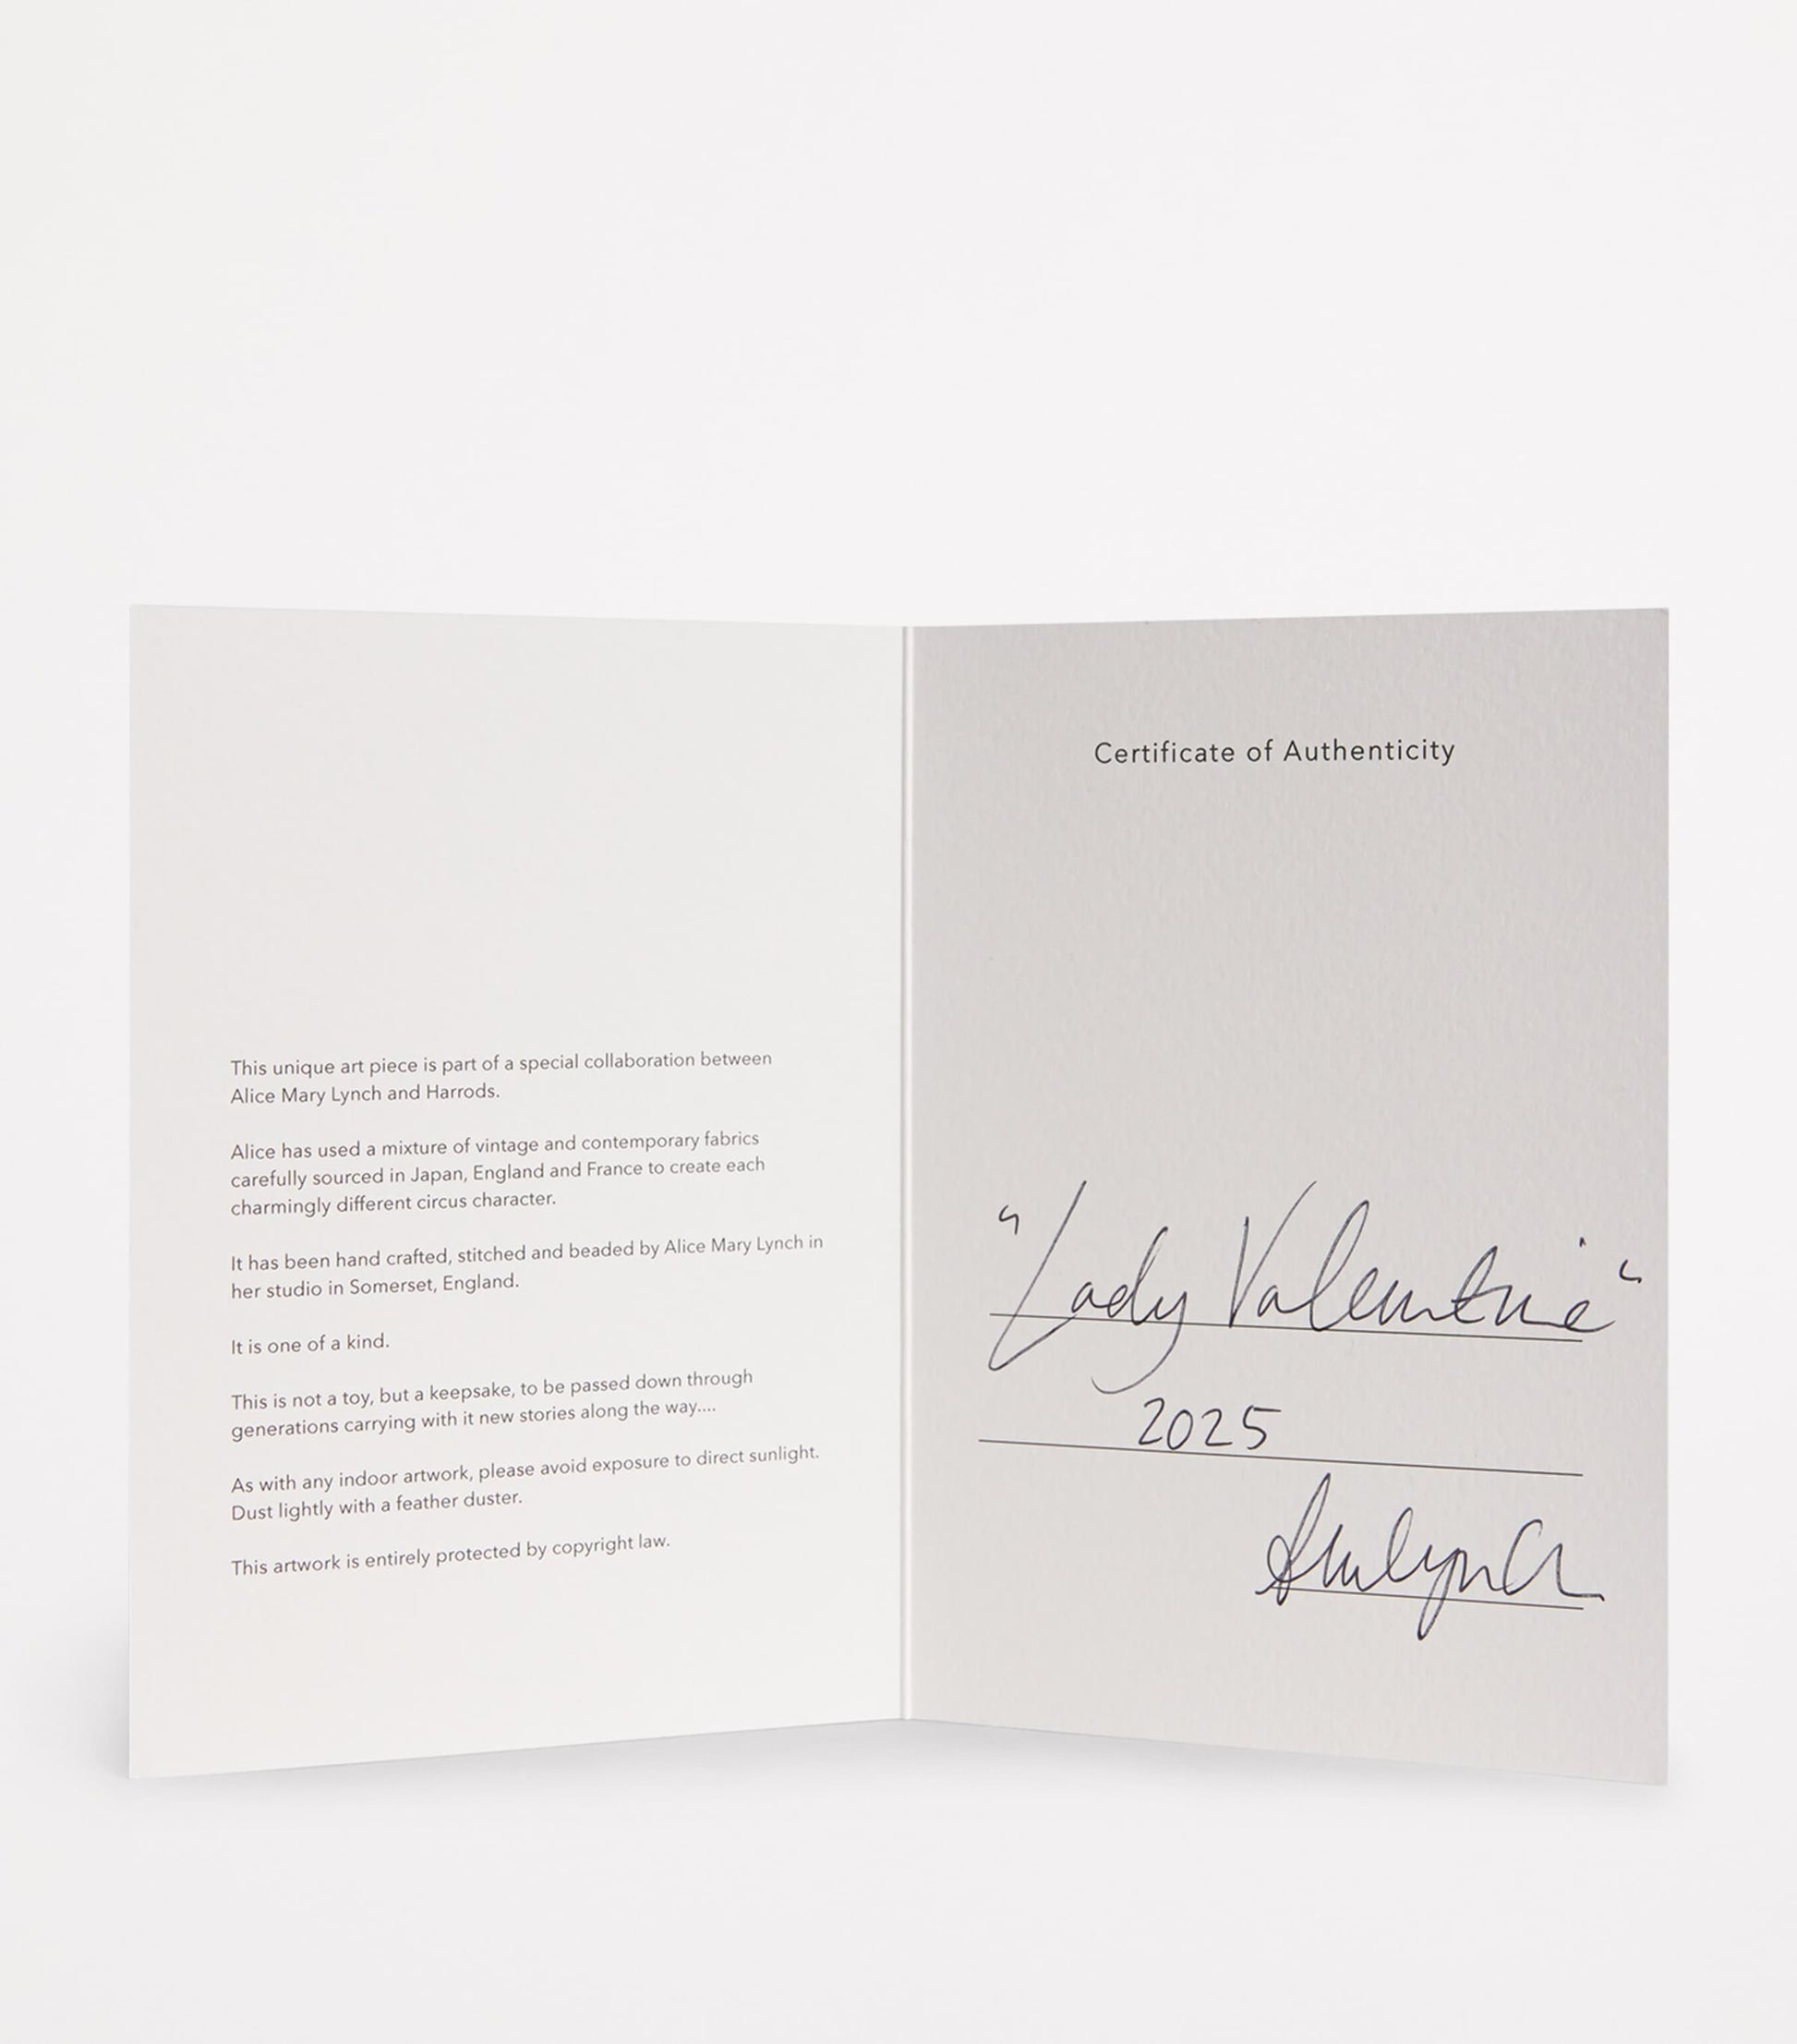 This unique art piece is part of a special collaboration between
Alice Mary Lynch and Harrods.
Alice has used a mixture of vintage and contemporary fabrics
carefully sourced in Japan, England and France to create each
charmingly different circus character.
It has been hand crafted, stitched and beaded by Alice Mary Lynch in
her studio in Somerset, England.
It is one of a kind.
This is not a toy, but a keepsake, to be passed down through
generations carrying with it new stories along the way....
As with any indoor artwork, please avoid exposure to direct sunlight.
Dust lightly with a feather duster.
This artwork is entirely protected by copyright law.
Certificate of Authenticity
“Lady Valentine“
2025